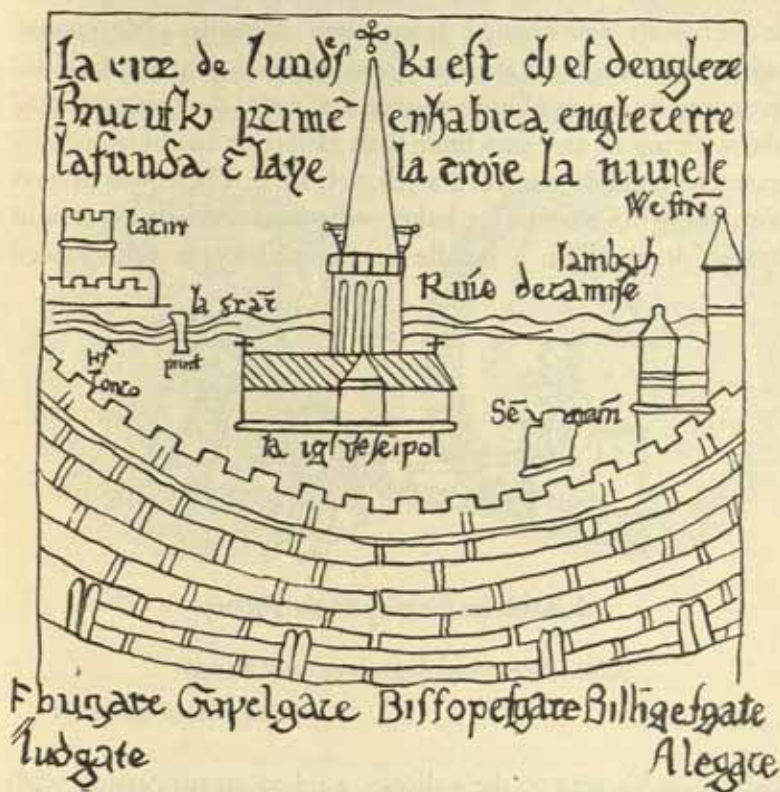 la cite de lundeſ ki eſt chef denglete
Brutuſ ki prime͂ enhabita engleterre
lafunda & laye la troie la nuuele
Weſtm̄
latur
lambeth
la grāt
Ruie detamiſe
punt
Sē
la igliſe ſeīpol
buzate Gripelgate Biſſopeſgate Billīgeſgate
ludgate Alegate